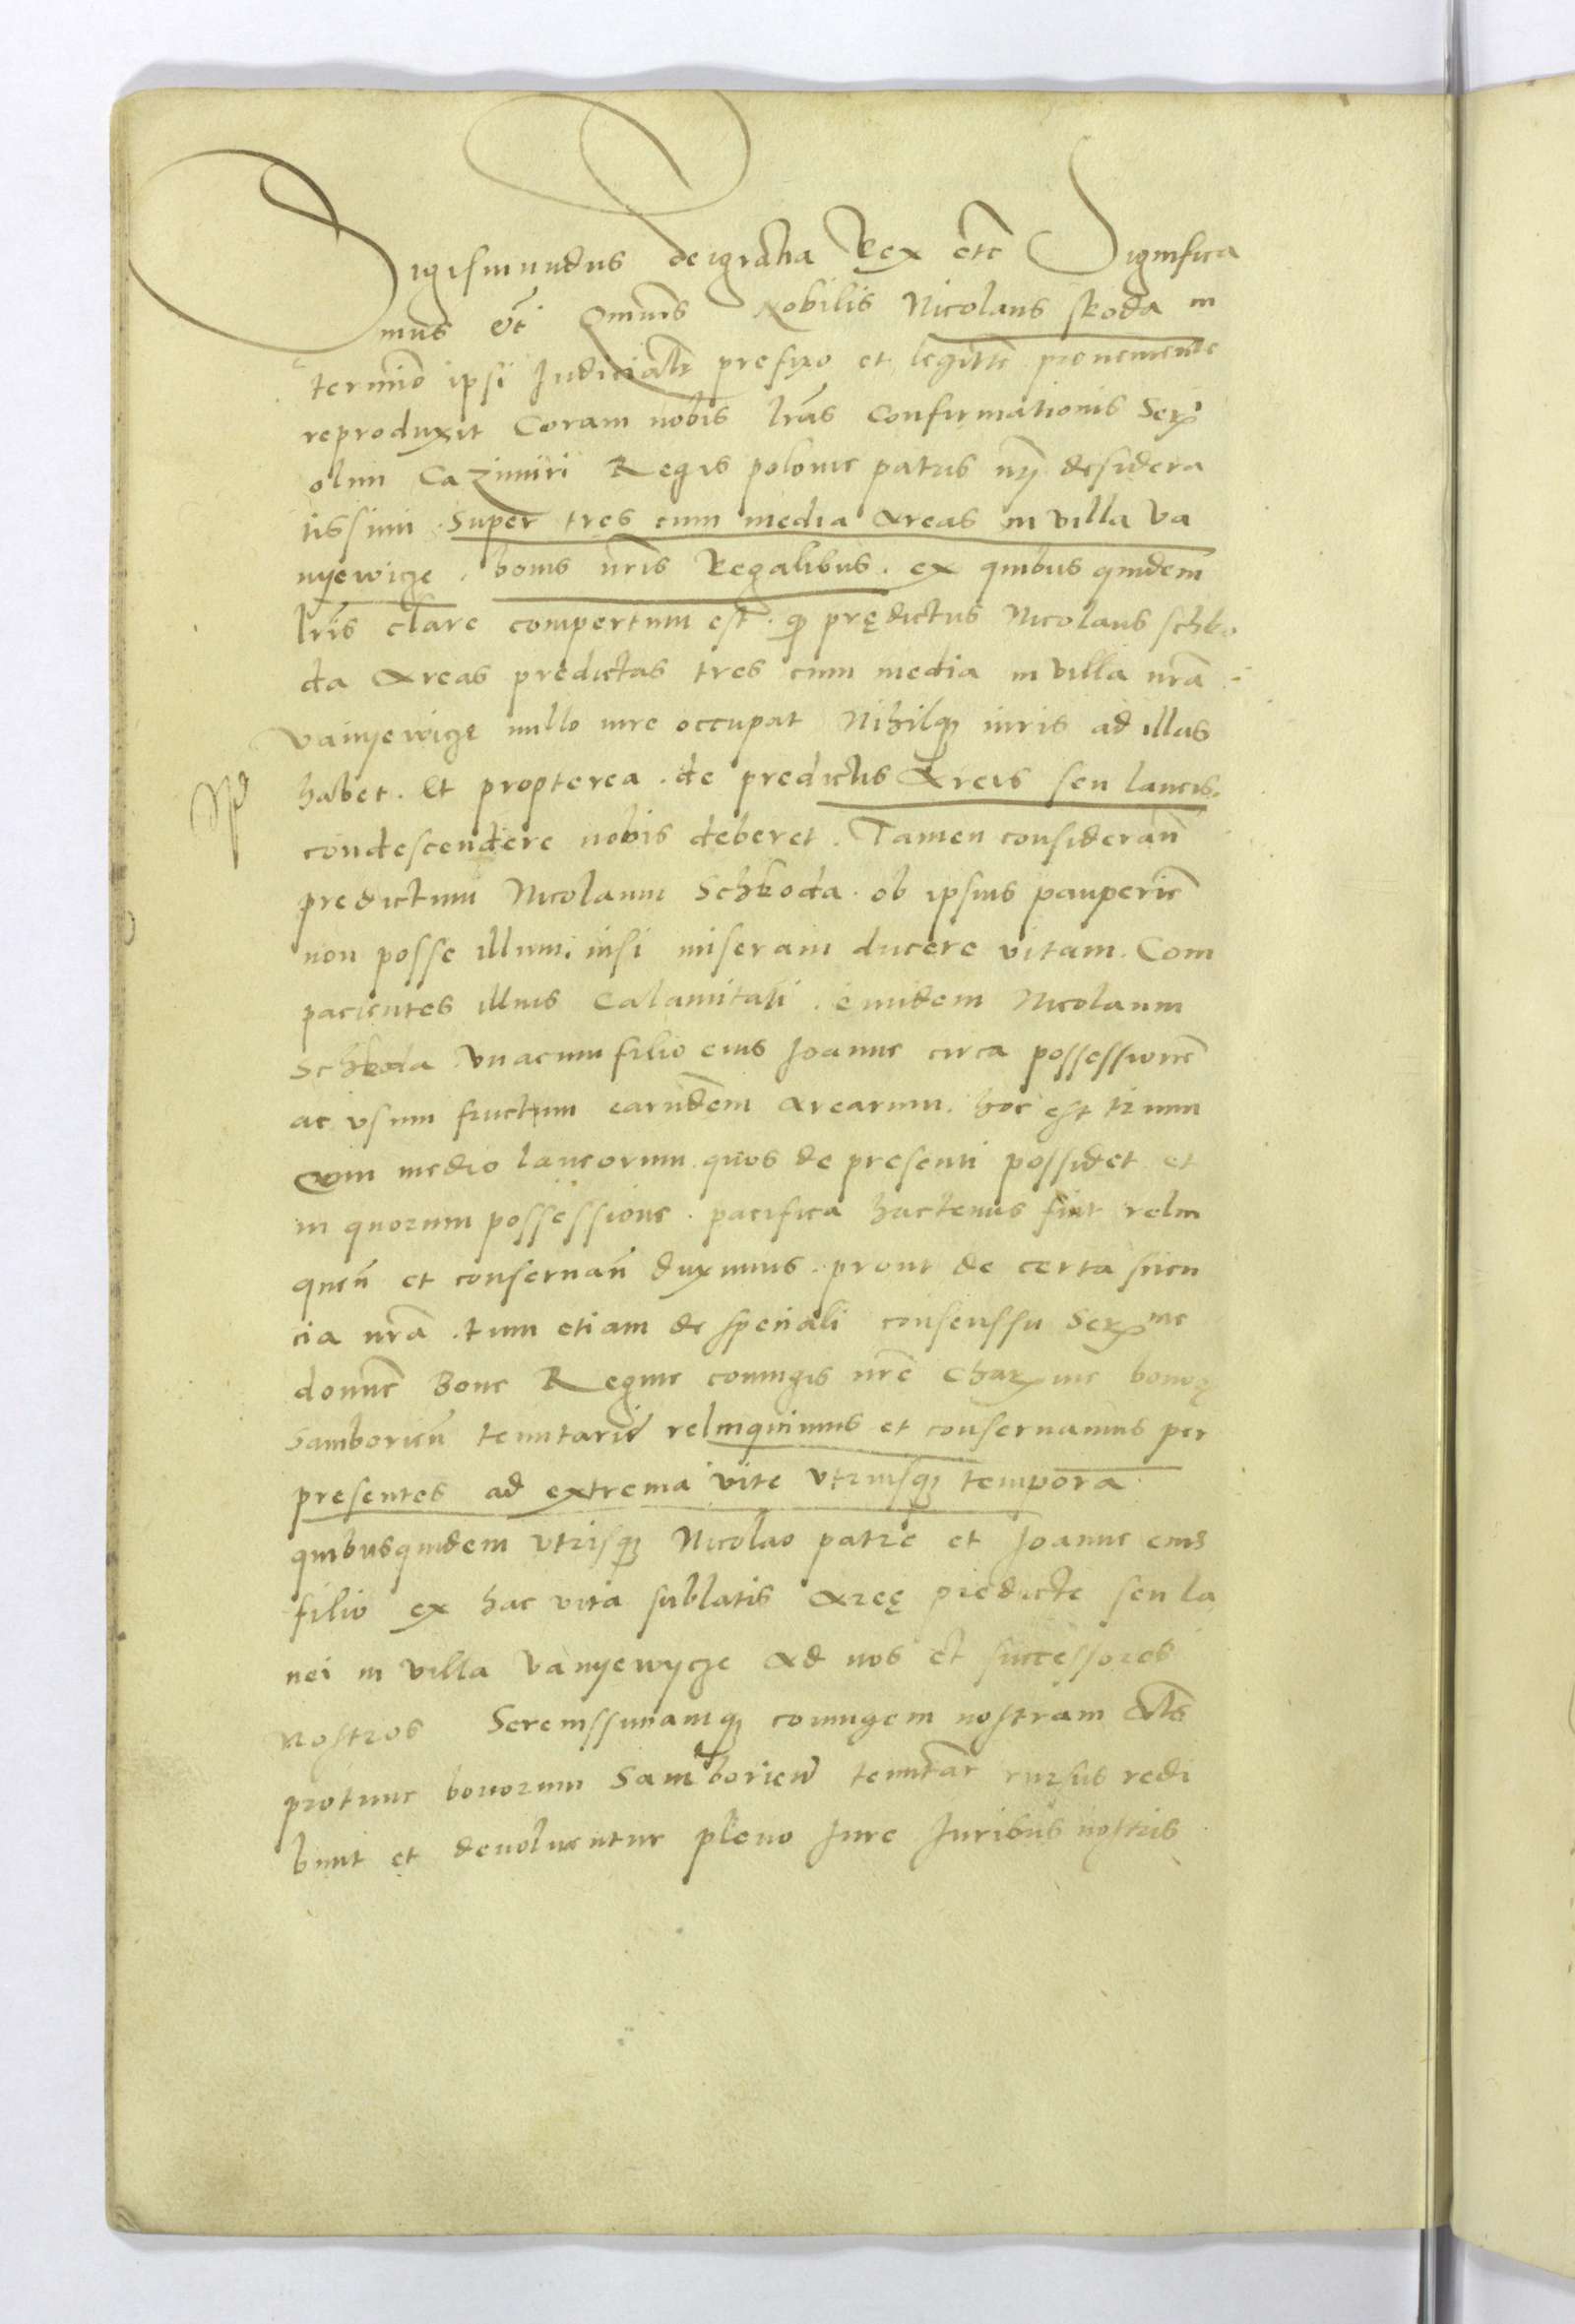 Sigismundus dei gratia Rex etc Significa
mus etc Quomodo Nobilis Nicolaus skoda in
termino ipsi Judicialr prefixo et legittie proneniente
reproduxit Coram nobis lras Confirmationis Serx
olim Cazimiri Regis polonie patris nri desidera
tissimi . Super tres cum media Areas in villa Va
nyewicze . bonis nris Regalibus . ex quibus quidem
lris clare compertum est . q prędictus Nicolaus schko
da Areas predictas tres cum media in villa nra
Vanyewicze nullo iure occupat Nihilq iuris ad illas
habet . Et propterea . de predictis Areis seu laneis .
condescendere nobis deberet . Tamen consideran
predictum Nicolaum Schkoda . ob ipsius pauperie
non posse illum . nisi miseram ducere vitam . Com
pacientes illius Calamitati . eundem Nicolaum
Schkoda vnacum filio eius Joanne circa possessione
ac vsum fructum earundem Arearum . hoc est trium
cum medio laneorum quos de presenti possidet et
in quorum possessione . pacifica hactenus fuit relin
quen et conseruan duximus . prout de certa scien
cia nra . tum etiam de speciali consenssu Serx me
domine Bone Regine coniugis nre Charx me bonor
Samborien tenutarie relinquimus et conseruamus per
presentes ad extrema vite vtriusq tempora .
quibusquidem vtrisq Nicolao patre et Joanne eius
filio ex hac vita sublatis Areę predicte seu la
nei in villa Vanyewycze Ad nos et successores
nostros Serenissimamq coniugem nostram
protunc bonorum Samborien tenutar rursus redi
bunt et deuoluentur pleno Jure Juribus nostris